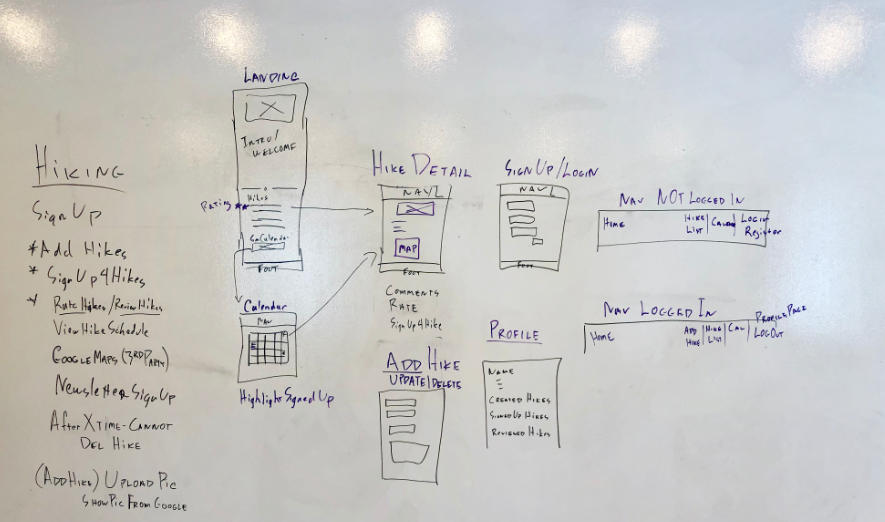 Hiking
SignUp
*Add Hikes
* SignUp4Hikes
* Rate Hikes/Review Hikes
View Hike Schedule
Google Maps (3rd Party)
Newsletter SignUp
After X Time - Cannot
Del Hike
(Add Hike) Upload Pic
Show Pic From Google
Landing
Intro/
Welcome
Hikes
Rating **
Calendar
Foot
Calendar
Nav
Highlight Signed Up
Hike Detail
Nav
Map
Foot
Comments
Rate
SignUp4Hike
Add Hike
Update/Delete
SignUp/Login
Nav
Foot
Profile
Name
Created Hikes
Signed Up Hikes
Reviewed Hikes
Nav Not Logged In
Home
Hike List
Login
Register
Nav Logged In
Home
Add Hike
Hike List
Cal
Profile Page
LogOut